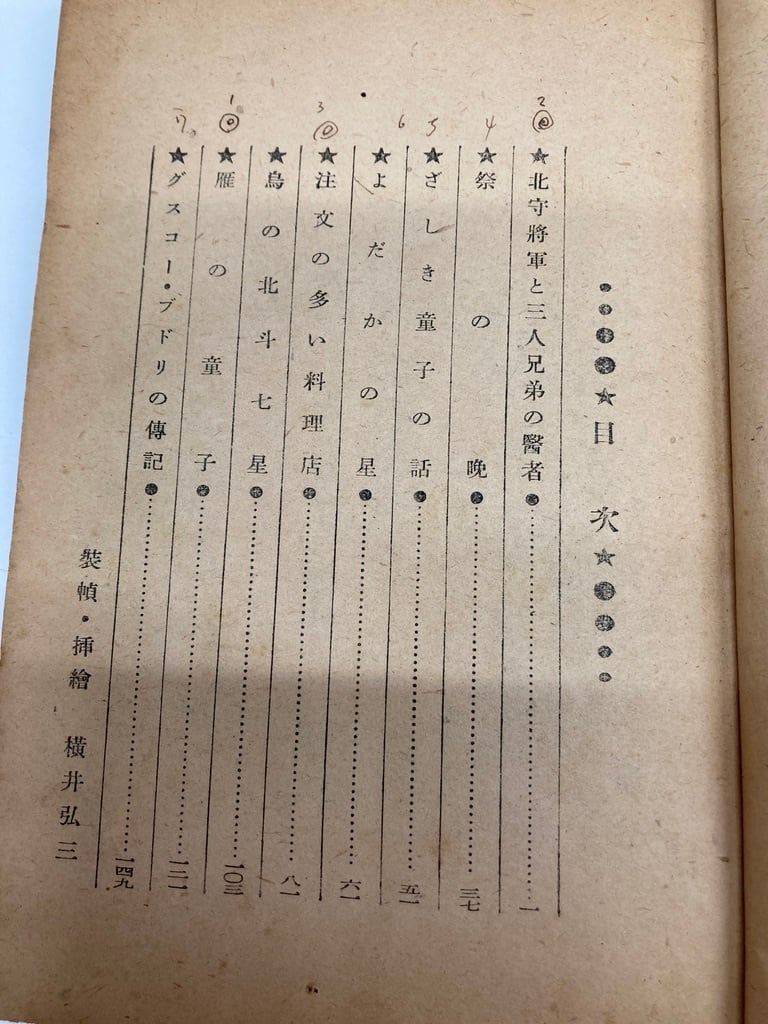 ●●●●★目次★●●●●
2 ◎
★北守將軍と三人兄弟の醫者●……一
4
★祭の晩●……三七
5
★ざしき童子の話●……五一
6
★よだかの星●……六一
3 ◎
★注文の多い料理店●……八一
★烏の北斗七星●……一〇三
1 ◎
★雁の童子●……一二一
7
★グスコー・ブドリの傳記●……一四九
裝幀・揷繪 横井弘三